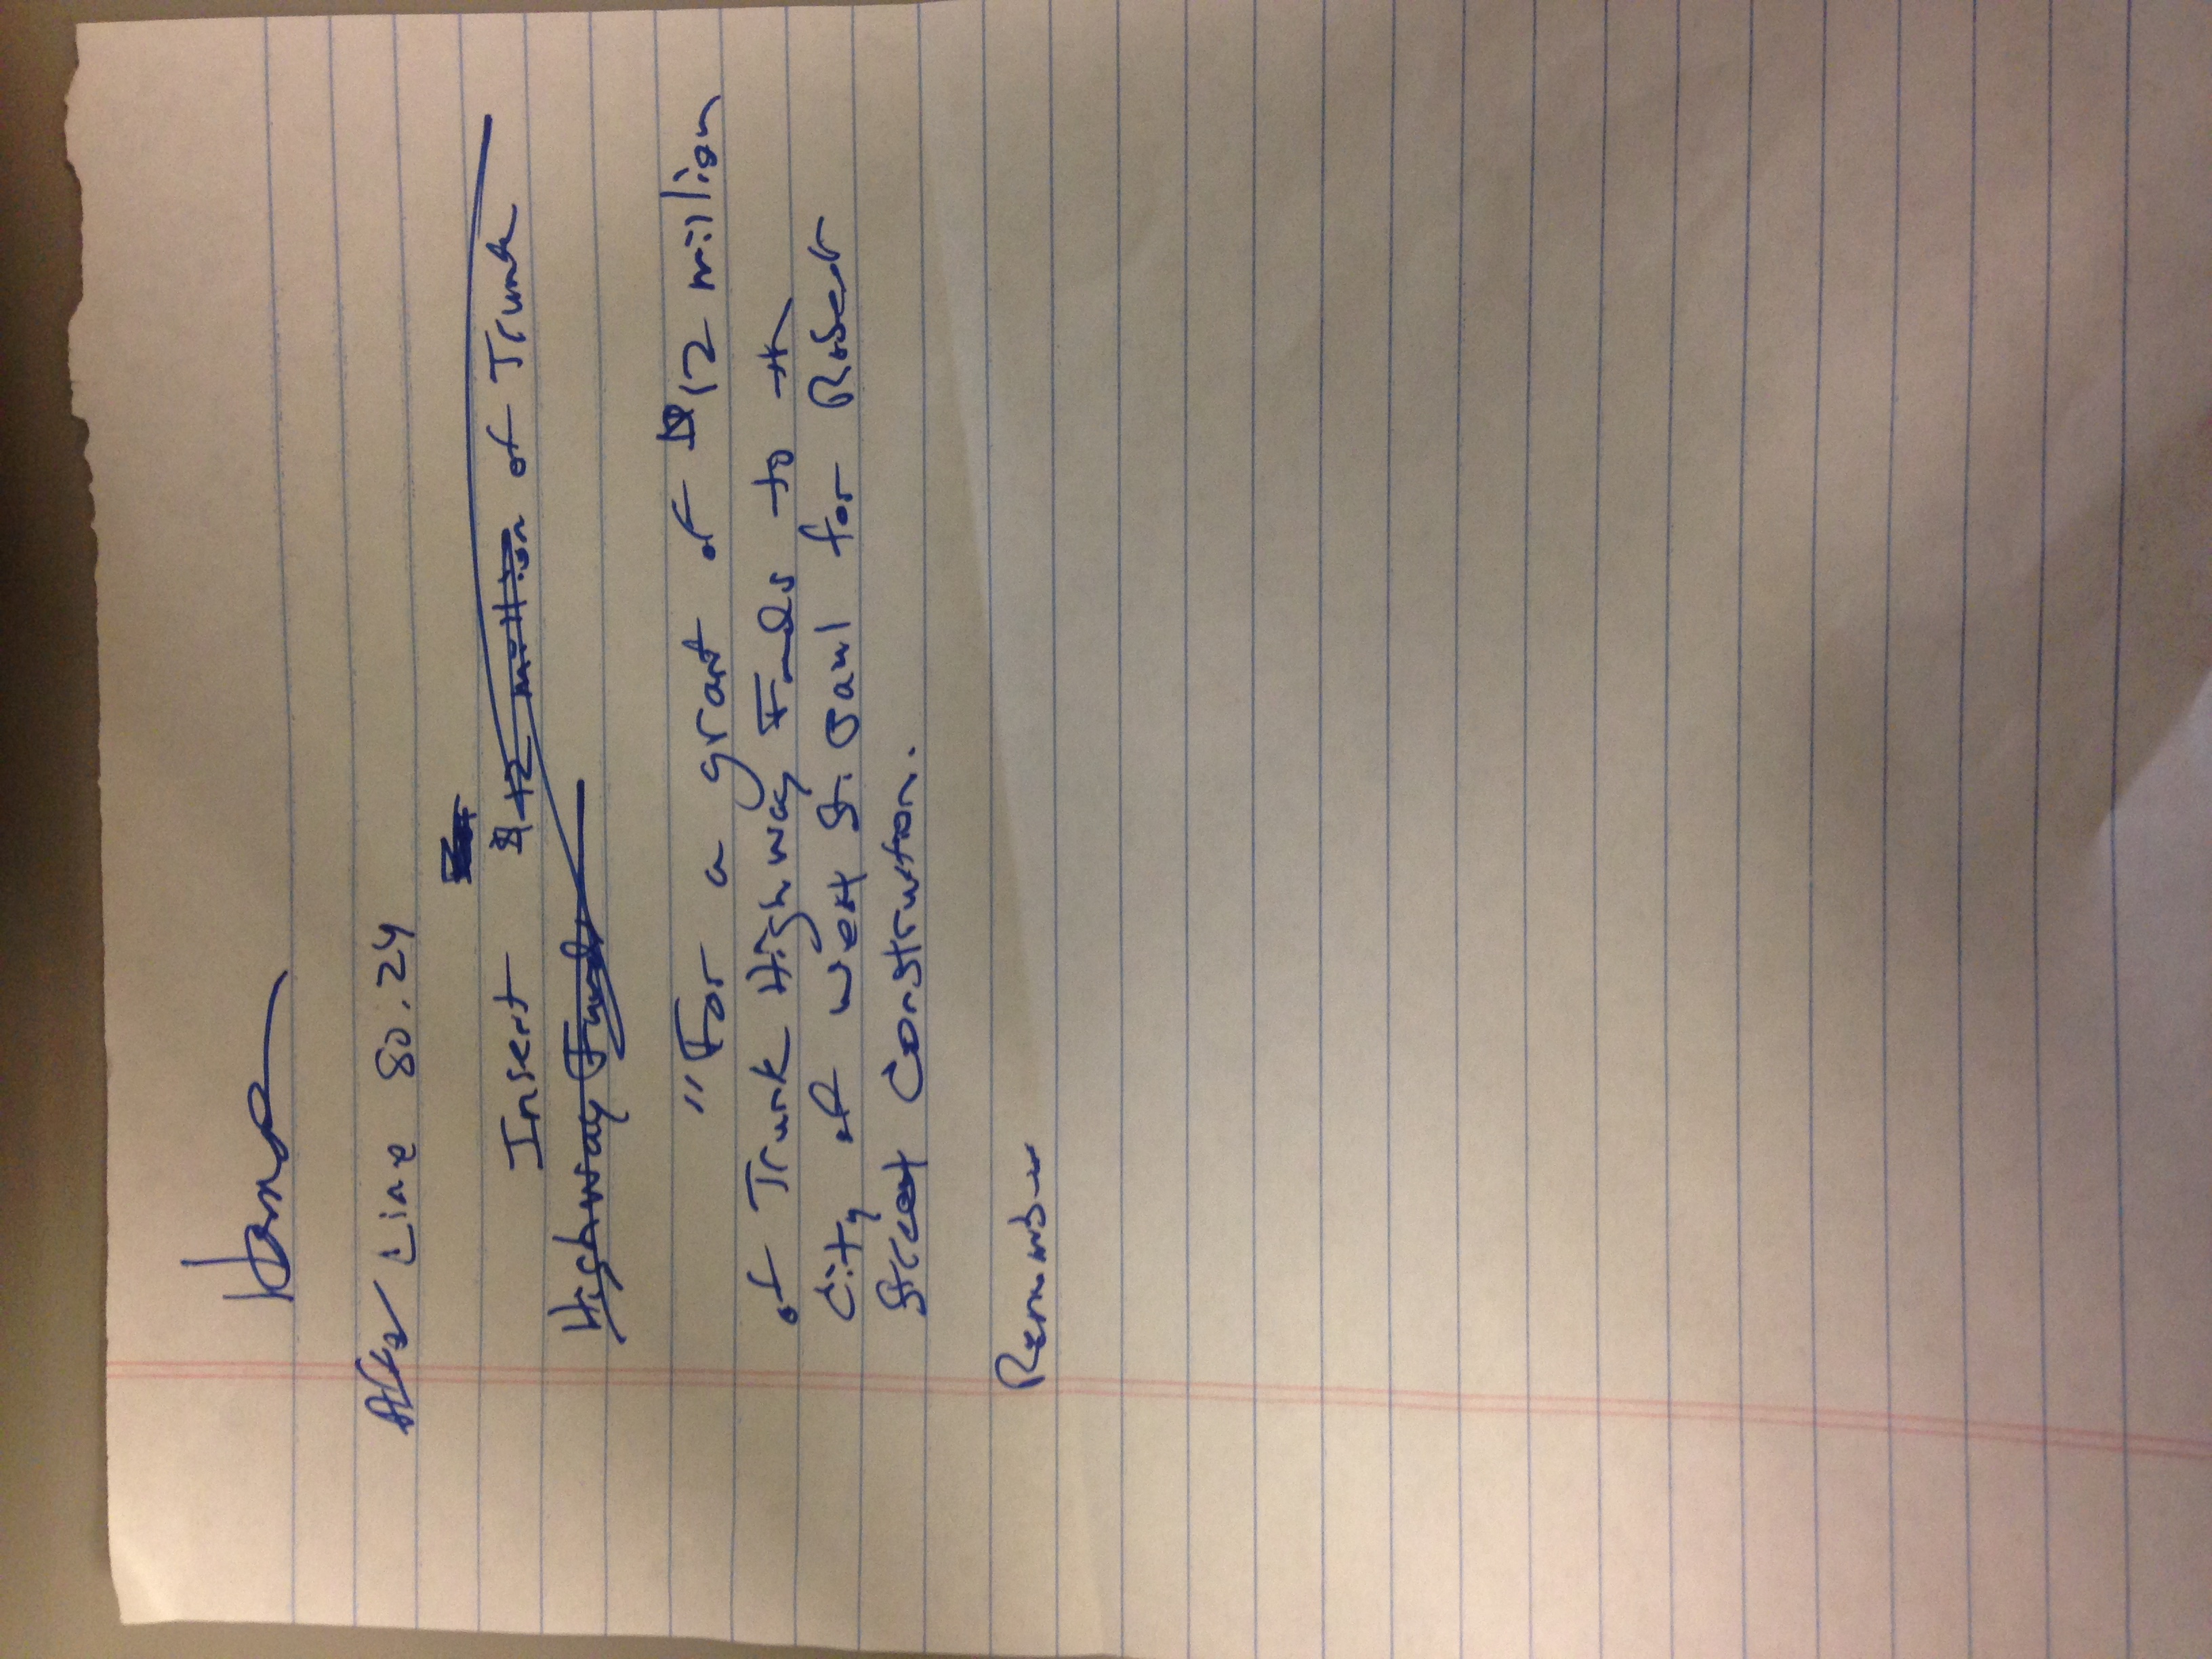 After Line 80.24
Insert $12 million of Trunk
Highway Funds
"For a grant of $12 million
of Trunk Highway Funds to th
City of West St. Paul for Robert
Street Construction.
Renumber